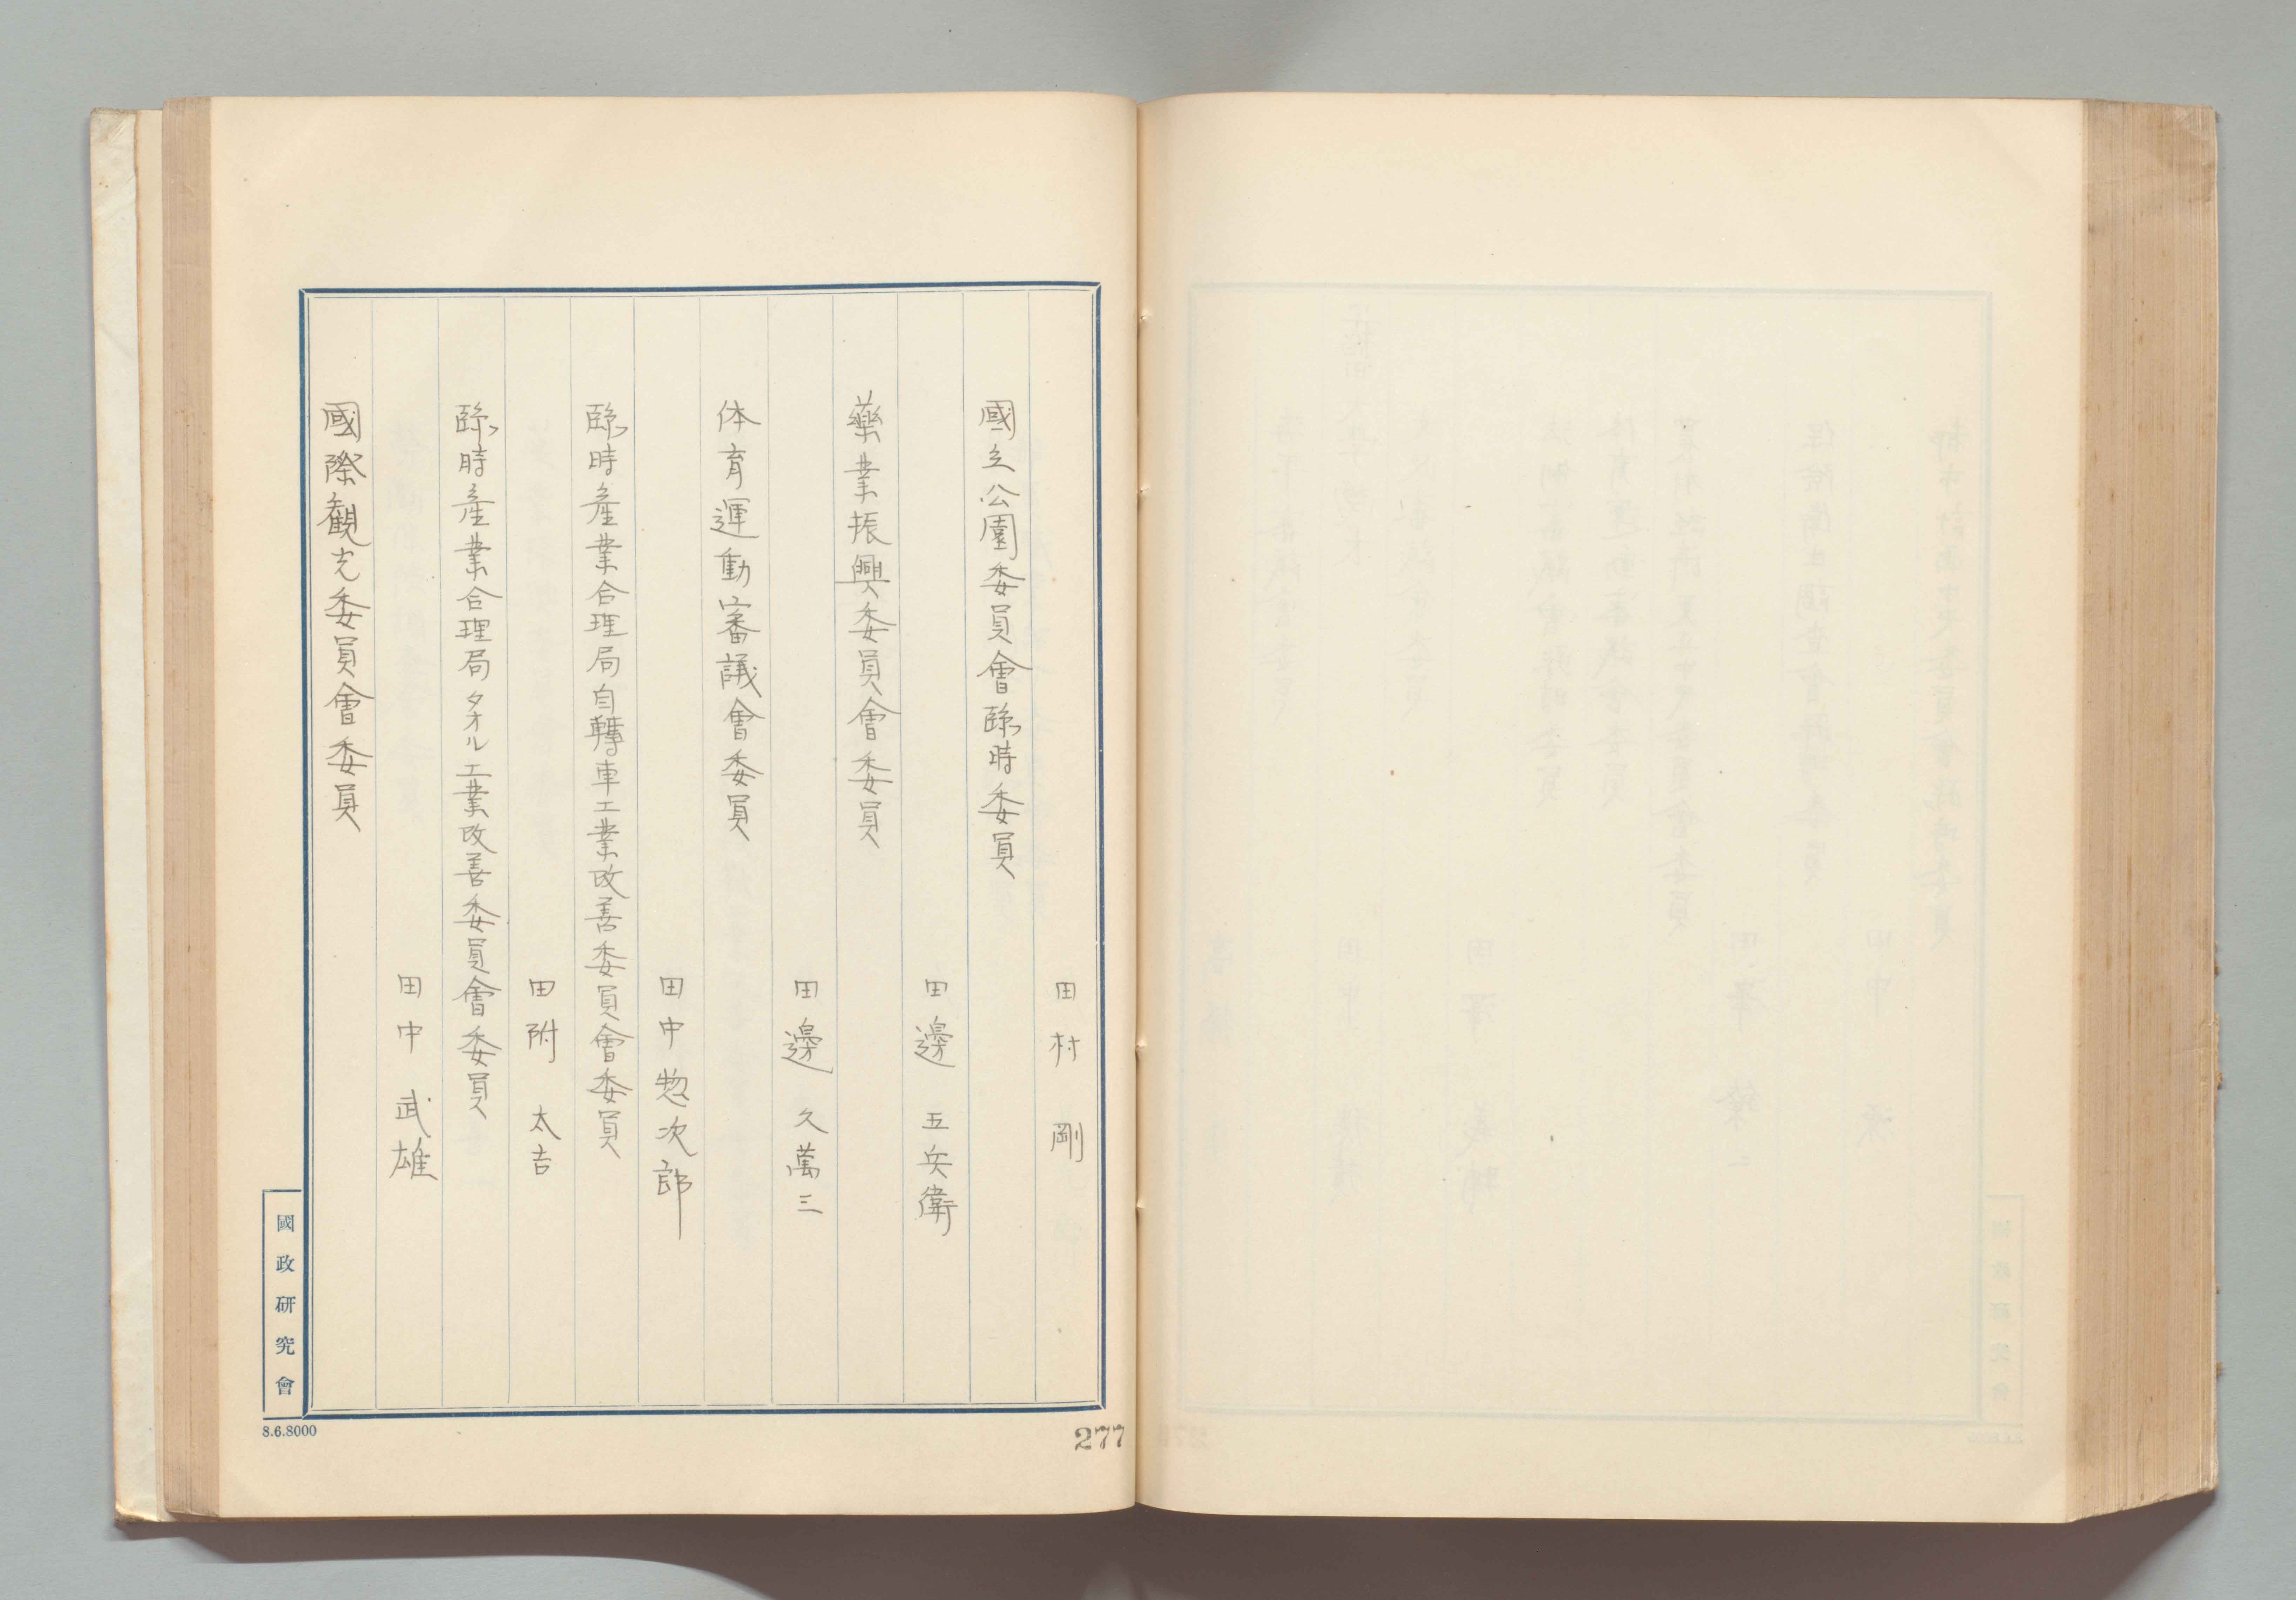 田村 剛
國立公園委員會臨時委員
田邊 五兵衛
藥業振興委員會委員
田邊 久萬三
体育運動審議會委員
田中惣次郎
臨時產業合理局自轉車工業改善委員會委員
田附 太吉
臨時產業合理局タオル工業改善委員會委員
田中 武雄
國際観光委員會委員
國政研究會
8.6.8000
277